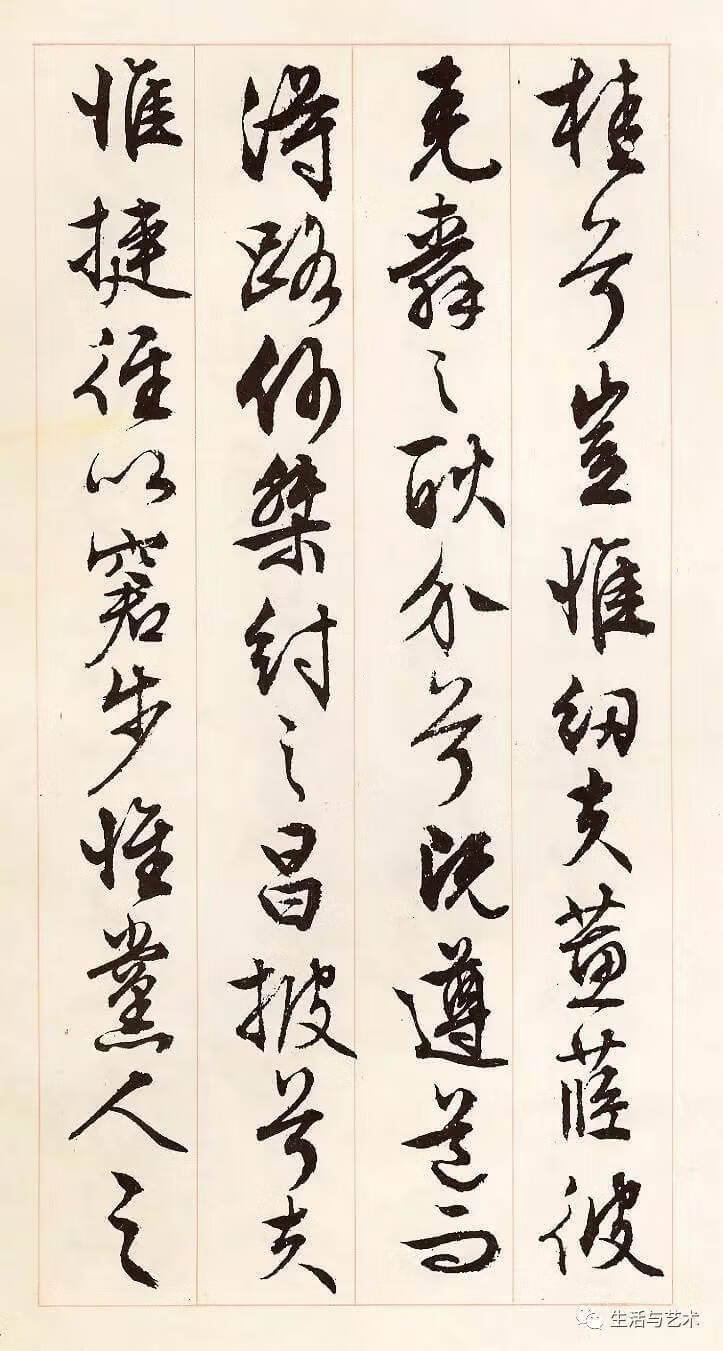 桂兮豈惟紉夫蕙茝彼
堯舜之耿介兮既遵道而
得路何桀紂之昌披兮夫
惟捷徑以窘步惟黨人之
生活与艺术